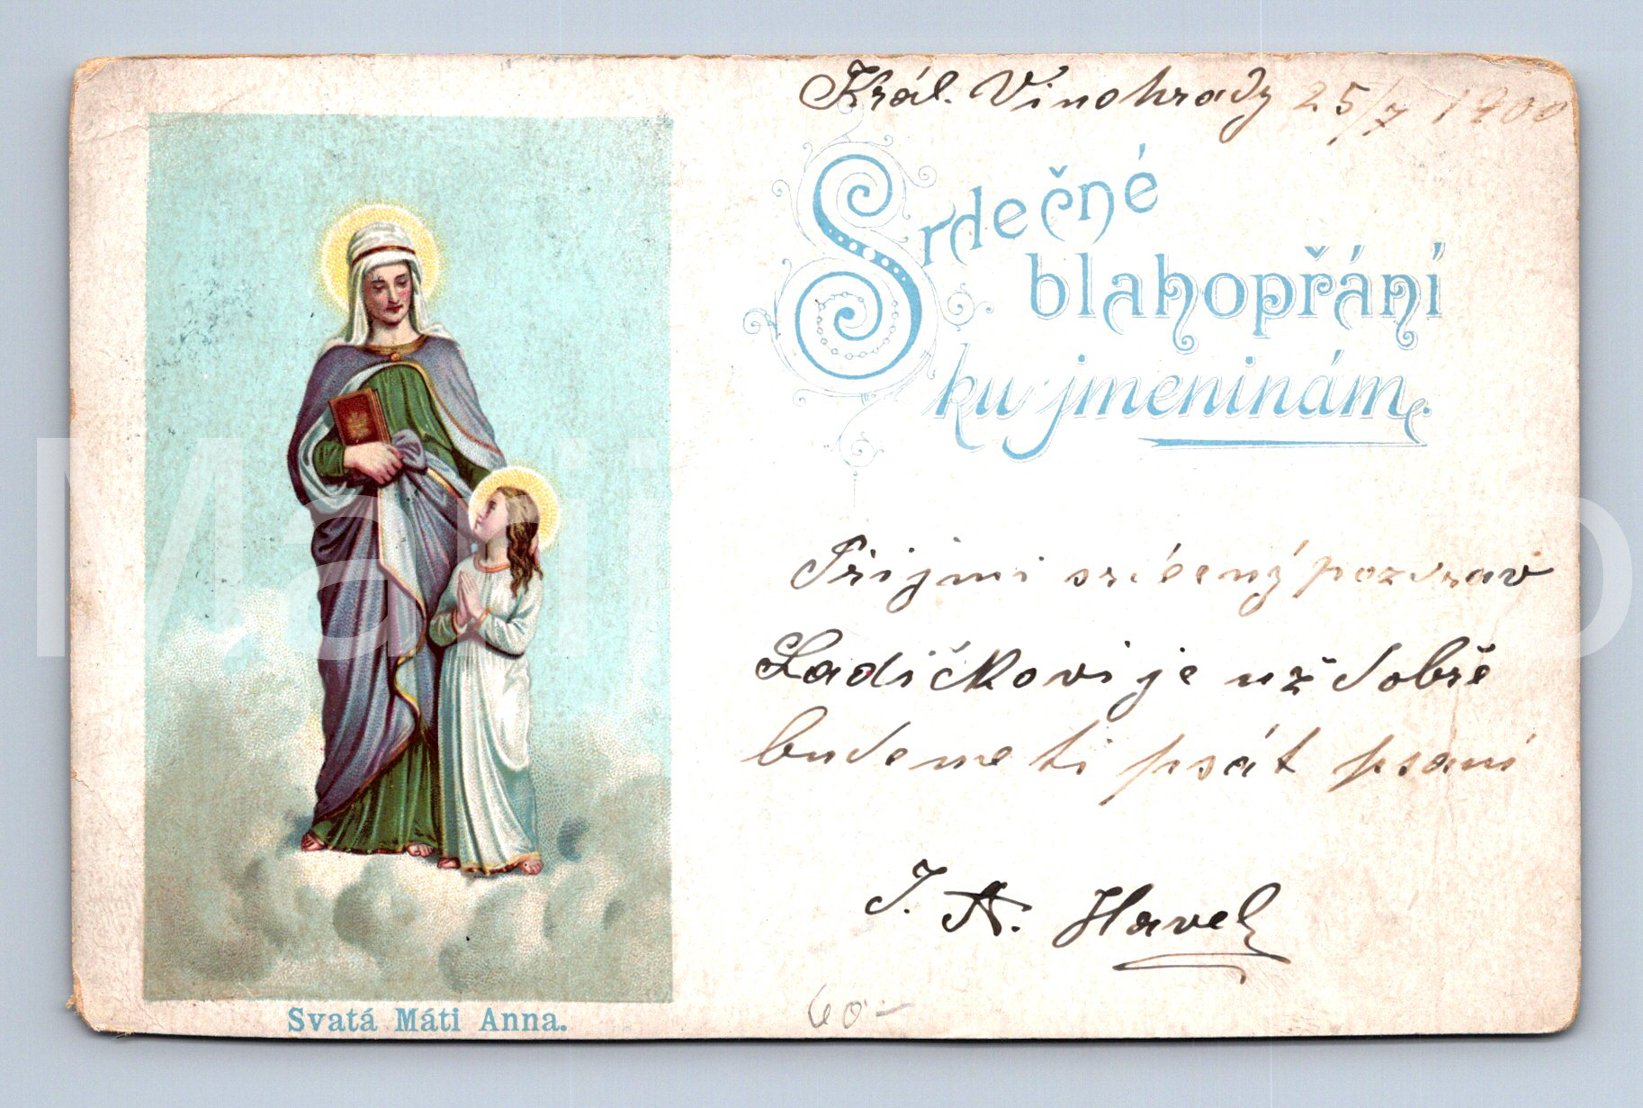 Král. Vinohrady 25/7 1900
Srdečné
blahopřání
ku jmeninám.
Přijmi srdečný pozdrav
Ladíčkovi je už dobře
budeme ti psát psaní
J. A. Havel
Svatá Máti Anna.
60-